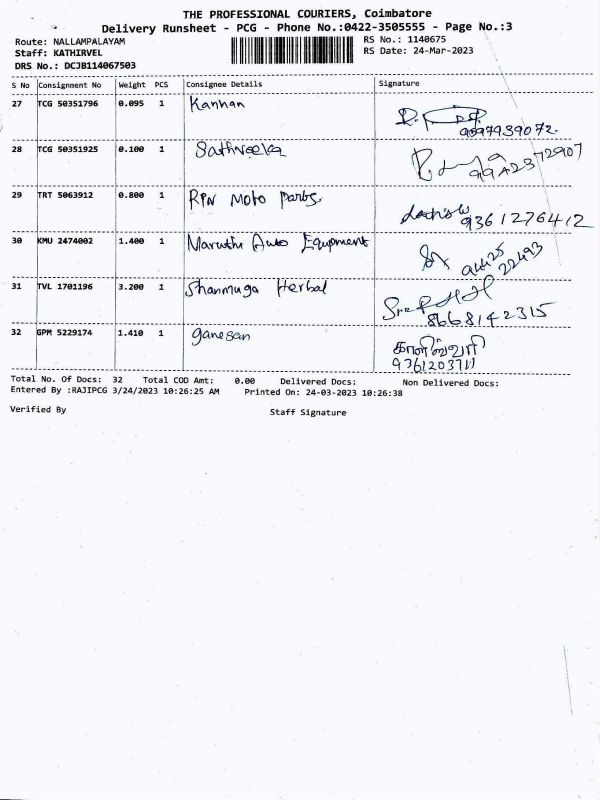 THE PROFESSIONAL COURIERS, Coimbatore
Delivery Runsheet - PCG - Phone No.:0422-3505555 - Page No.:3
Route: NALLAMPALAYAM RS No.: 1140675
Staff: KATHIRVEL RS Date: 24-Mar-2023
DRS No.: DCJB114067503
S No Consignment No Weight PCS Consignee Details Signature
27 TCG 50351796 0.095 1 Kannan
9097939072.
28 TCG 50351925 0.100 1 Sathveeka
29 TRT 5063912 0.800 1 RPN Moto Parts.
9361276412
30 KMU 2474002 1.400 1 Maruthi Auto Equipment
22493
31 TVL 1701196 3.200 1 Shanmuga Herbal
8668142315
32 GPM 5229174 1.410 1 ganesan
9361203711
Total No. Of Docs: 32 Total COD Amt: 0.00 Delivered Docs: Non Delivered Docs:
Entered By :RAJIPCG 3/24/2023 10:26:25 AM Printed On: 24-03-2023 10:26:38
Verified By Staff Signature